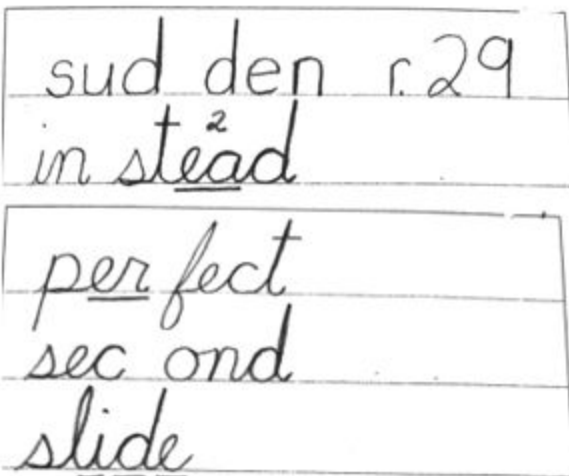 sud den r. 29
in stead
2
per fect
sec ond
slide